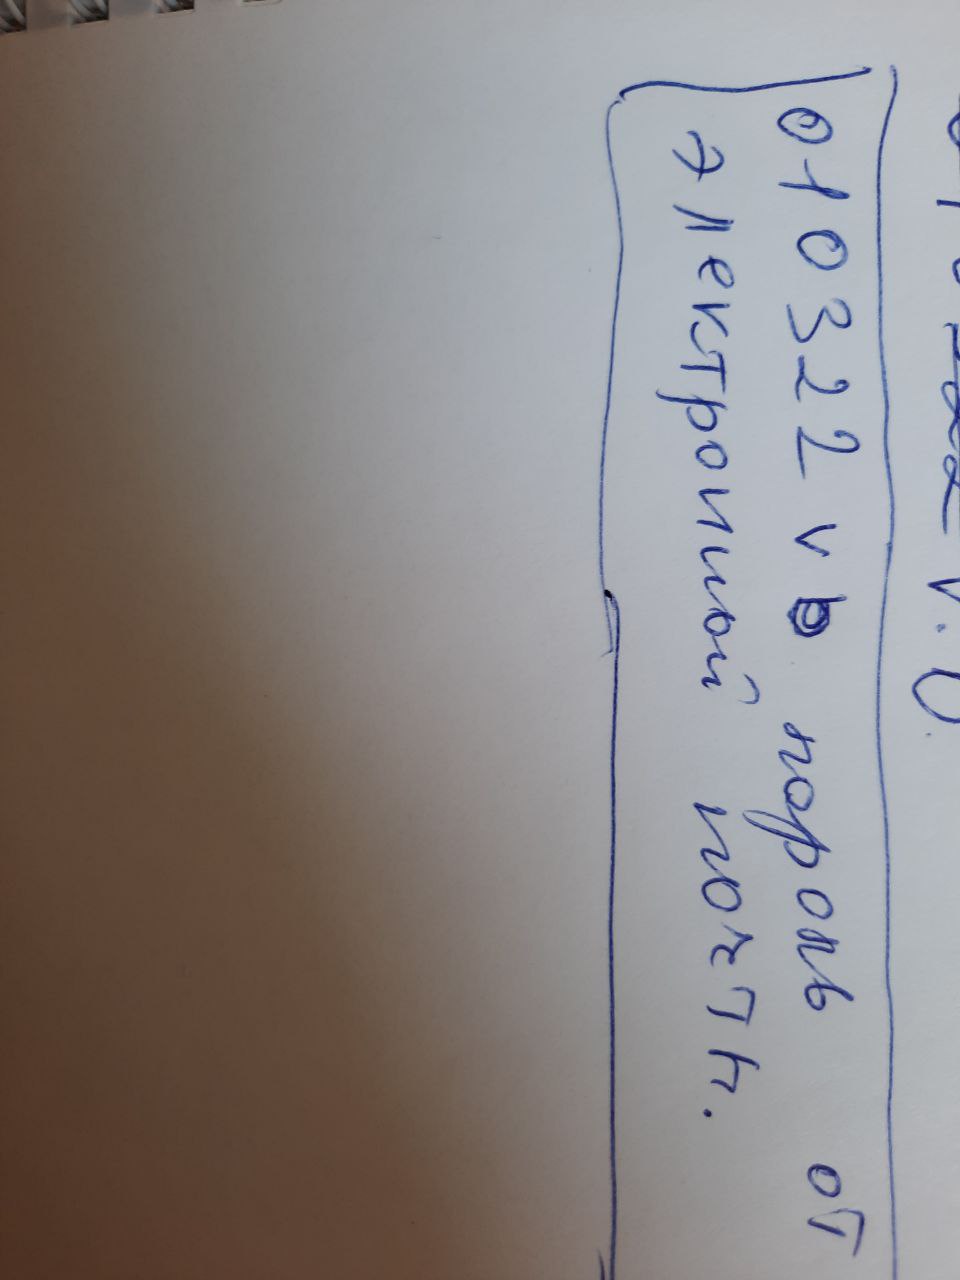 010322vb пароль от
электронной почты.